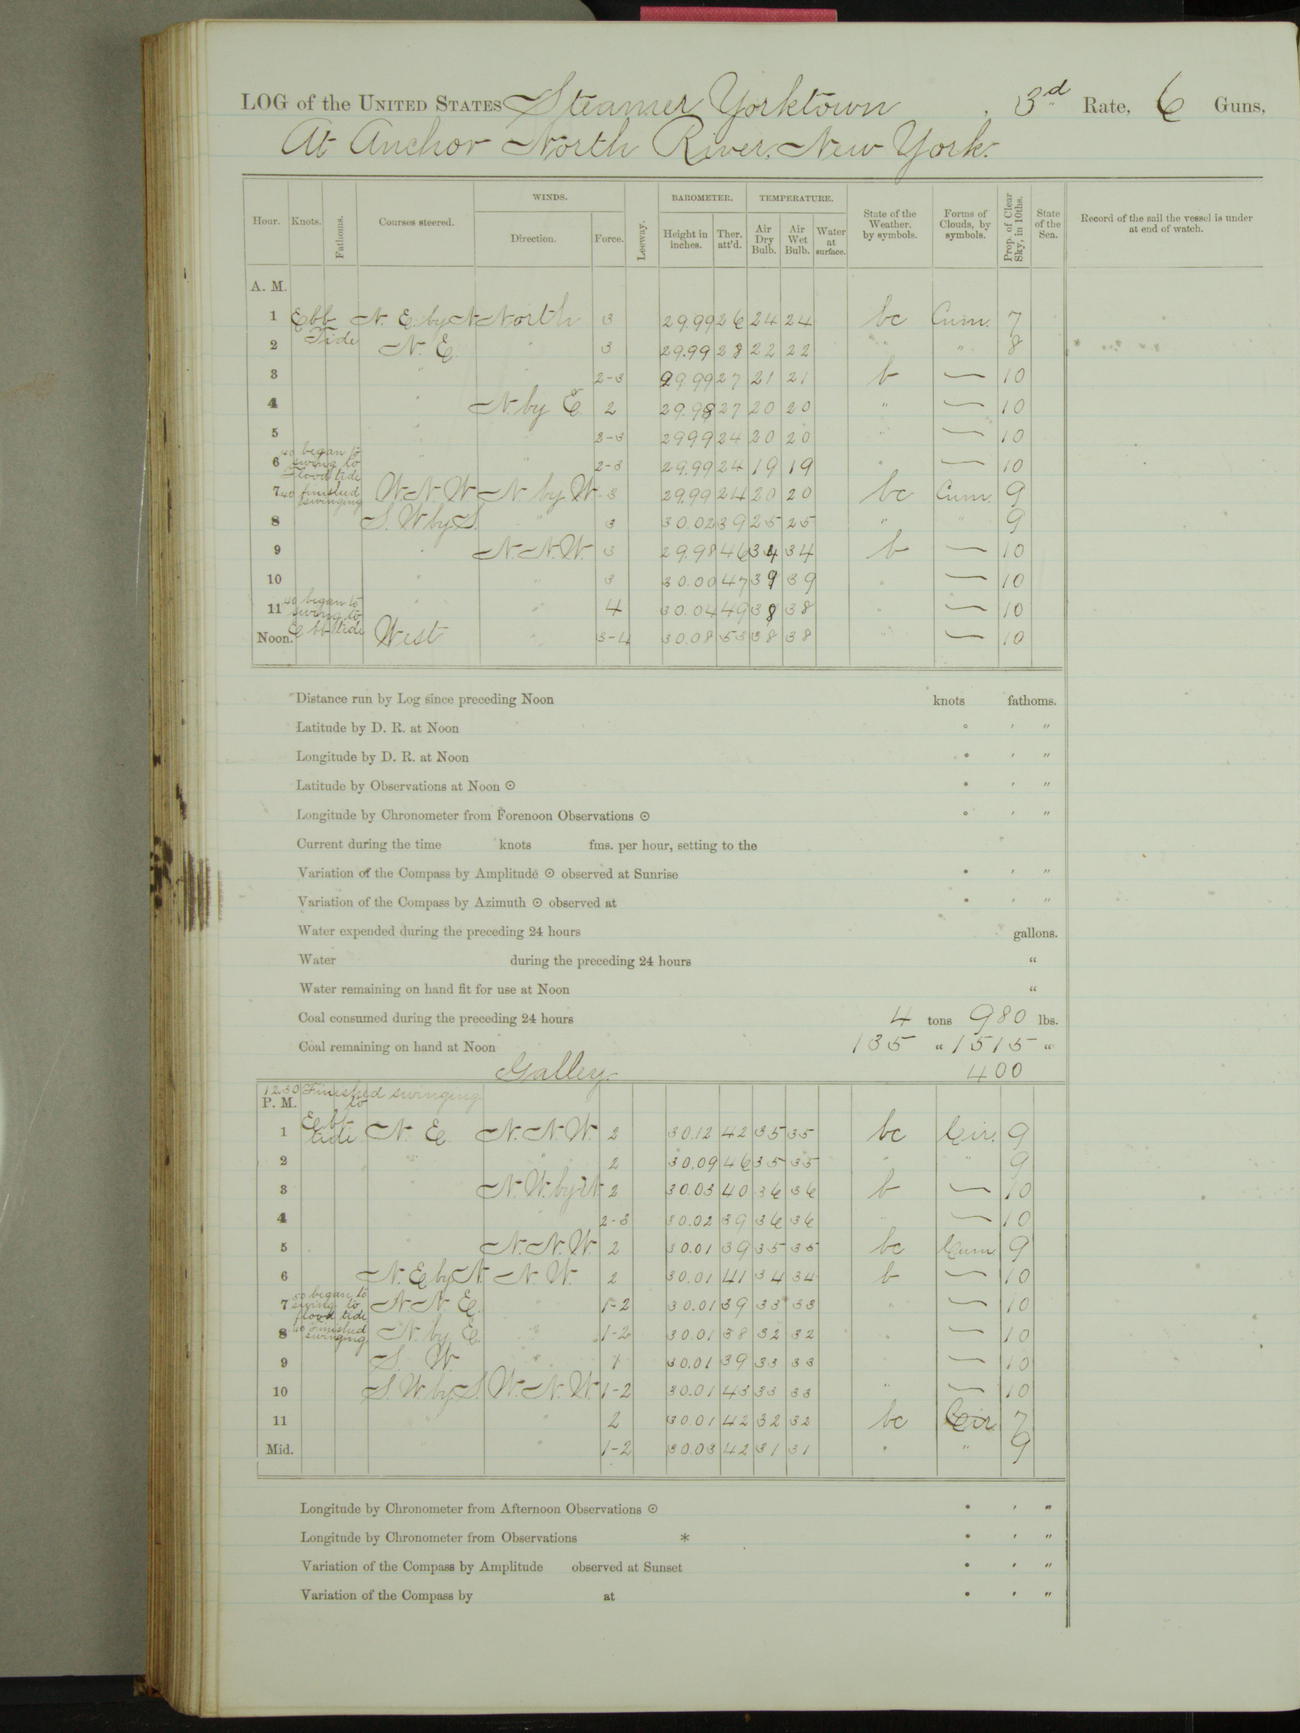 LOG of the UNITED STATES Steamer Yorktown, 3rd Rate, 6 Guns,
At Anchor North River. New York.
Hour. Knots. Fathoms. Courses steered. WINDS. Direction. Force. Leeway. BAROMETER. Height in inches. Ther. att'd. TEMPERATURE. Air Dry Bulb. Air Wet Bulb. Water at surface. State of the Weather, by symbols. Forms of Clouds, by symbols. Prop. of Clear Sky, in 10ths. State of the Sea. Record of the sail the vessel is under at end of watch.
A. M.
1 Ebb Tide N. E. by N. North 3 29.99 26 24 24 bc Cum. 7
2 N. E. " 3 29.99 28 22 22 " " 8
3 " " 2-3 29.99 27 21 21 b — 10
4 " N. by E. 2 29.98 27 20 20 " — 10
5 " " 2-3 2999 24 20 20 " — 10
6 40 began to swing to flood tide " " 2-3 29.99 24 19 19 " — 10
7 40 finished swinging W. N. W. N. by W. 3 29.99 24 20 20 bc Cum. 9
8 S. W by S. " 3 30.02 39 25 25 " " 9
9 " N. N. W. 3 29.98 46 34 34 b — 10
10 " " 3 30.00 47 39 39 " — 10
11 40 began to swing to Ebb tide " " 4 30.04 49 38 38 " — 10
Noon. West " 3-4 30.08 53 38 38 " — 10
Distance run by Log since preceding Noon knots fathoms.
Latitude by D. R. at Noon ° ' "
Longitude by D. R. at Noon ° ' "
Latitude by Observations at Noon ⊙ ° ' "
Longitude by Chronometer from Forenoon Observations ⊙ ° ' "
Current during the time knots fms. per hour, setting to the
Variation of the Compass by Amplitude ⊙ observed at Sunrise ° ' "
Variation of the Compass by Azimuth ⊙ observed at ° ' "
Water expended during the preceding 24 hours gallons.
Water during the preceding 24 hours "
Water remaining on hand fit for use at Noon "
Coal consumed during the preceding 24 hours 4 tons 980 lbs.
Coal remaining on hand at Noon 135 " 1515 "
Galley. 400
12.30 Finished swinging to
P. M.
1 Ebb tide N. E. N. N. W. 2 30.12 42 35 35 bc Cir. 9
2 " " 2 30.09 46 35 35 " " 9
3 N. W. by N. 2 30.03 40 36 36 b — 10
4 " 2-3 30.02 39 36 36 " — 10
5 N. N. W. 2 30.01 39 35 35 bc Cum 9
6 N. E by N. N. W. 2 30.01 41 34 34 b — 10
7 50 began to swing to flood tide N. N. E. " 1-2 30.01 39 33 33 " — 10
8 40 Finished swinging N. by E. " 1-2 30.01 38 32 32 " — 10
9 S. W. " 1 30.01 39 33 33 — 10
10 S. W. by S. W. N. W. 1-2 30.01 43 33 33 " — 10
11 " " 2 30.01 42 32 32 bc Cir 7
Mid. " " 1-2 30.03 42 31 31 " " 9
Longitude by Chronometer from Afternoon Observations ⊙ ° ' "
Longitude by Chronometer from Observations * ° ' "
Variation of the Compass by Amplitude observed at Sunset ° ' "
Variation of the Compass by at ° ' "